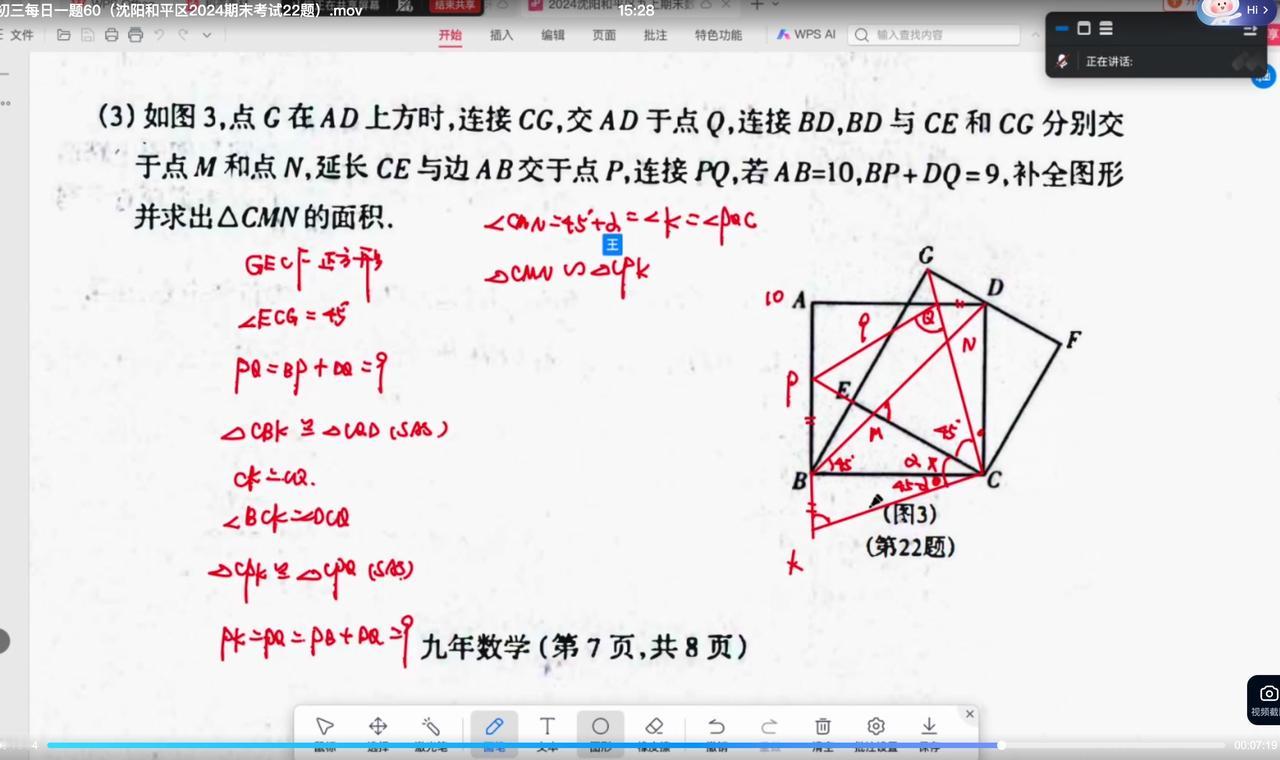 初三每日一题60（沈阳和平区2024期末考试22题）.mov
15:28
结束共享
Hi >
文件
开始 插入 编辑 页面 批注 特色功能 WPS AI 查找内容
正在讲话:
(3) 如图 3,点 G 在 AD 上方时,连接 CG,交 AD 于点 Q,连接 BD,BD 与 CE 和 CG 分别交
于点 M 和点 N,延长 CE 与边 AB 交于点 P,连接 PQ,若 AB=10,BP+DQ=9,补全图形
并求出△CMN 的面积.
∠CMN=45°+α=∠K=∠PQC
王
△CMN ∽ △CPK
GECF 正方形
∠ECG=45°
PQ=BP+DQ=9
△CBK ≌ △CQD (SAS)
CK=CQ.
∠BCK=∠DCQ
△CPK ≌ △CPQ (SAS)
PK=PQ=PB+DQ=9
G
10 A D
9 Q
N F
P E
M 45°
B 45° α x C
45-α
K
(图3)
(第22题)
九年数学 (第 7 页,共 8 页)
视频截
4
00:07:19